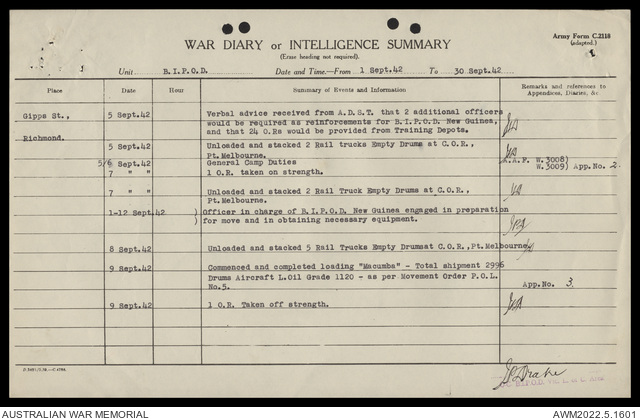 Army Form C.2118
(adapted.)
WAR DIARY or INTELLIGENCE SUMMARY
(Erase heading not required).
Unit B.I.P.O.D. Date and Time.—From 1 Sept.42 To 30 Sept.42
Place Date Hour Summary of Events and Information Remarks and references to Appendices, Diaries, &c
Gipps St., 5 Sept.42 Verbal advice received from A.D.S.T. that 2 additional officers
would be required as reinforcements for B.I.P.O.D. New Guinea,
Richmond. and that 24 O.Rs would be provided from Training Depots.
5 Sept.42 Unloaded and stacked 2 Rail trucks Empty Drums at C.O.R.,
Pt.Melbourne.
5/6 Sept.42 General Camp Duties W.3008)
7 " " 1 O.R. taken on strength. W.3009) App.No. 2.
7 " " Unloaded and stacked 2 Rail Truck Empty Drums at C.O.R.,
Pt.Melbourne.
1-12 Sept.42 ) Officer in charge of B.I.P.O.D. New Guinea engaged in preparation
) for move and in obtaining necessary equipment.
8 Sept.42 Unloaded and stacked 5 Rail Trucks Empty Drumsat C.O.R.,Pt.Melbourne
9 Sept.42 Commenced and completed loading "Macumba" - Total shipment 2996
Drums Aircraft L.Oil Grade 1120 - as per Movement Order P.O.L.
No.5. App.No. 3.
9 Sept.42 1 O.R. Taken off strength.
Drake
AUSTRALIAN WAR MEMORIAL AWM2022.5.1601